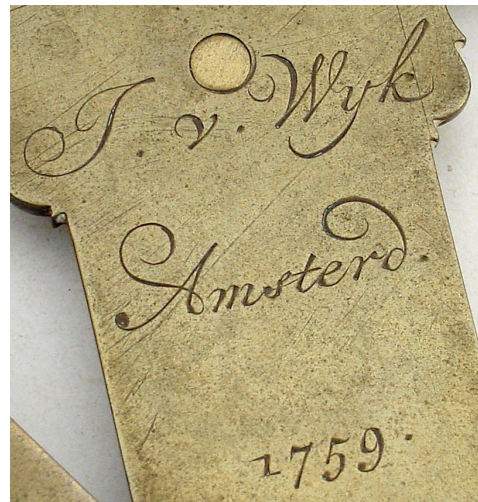 J. v. Wyk
Amsterd.
1759.